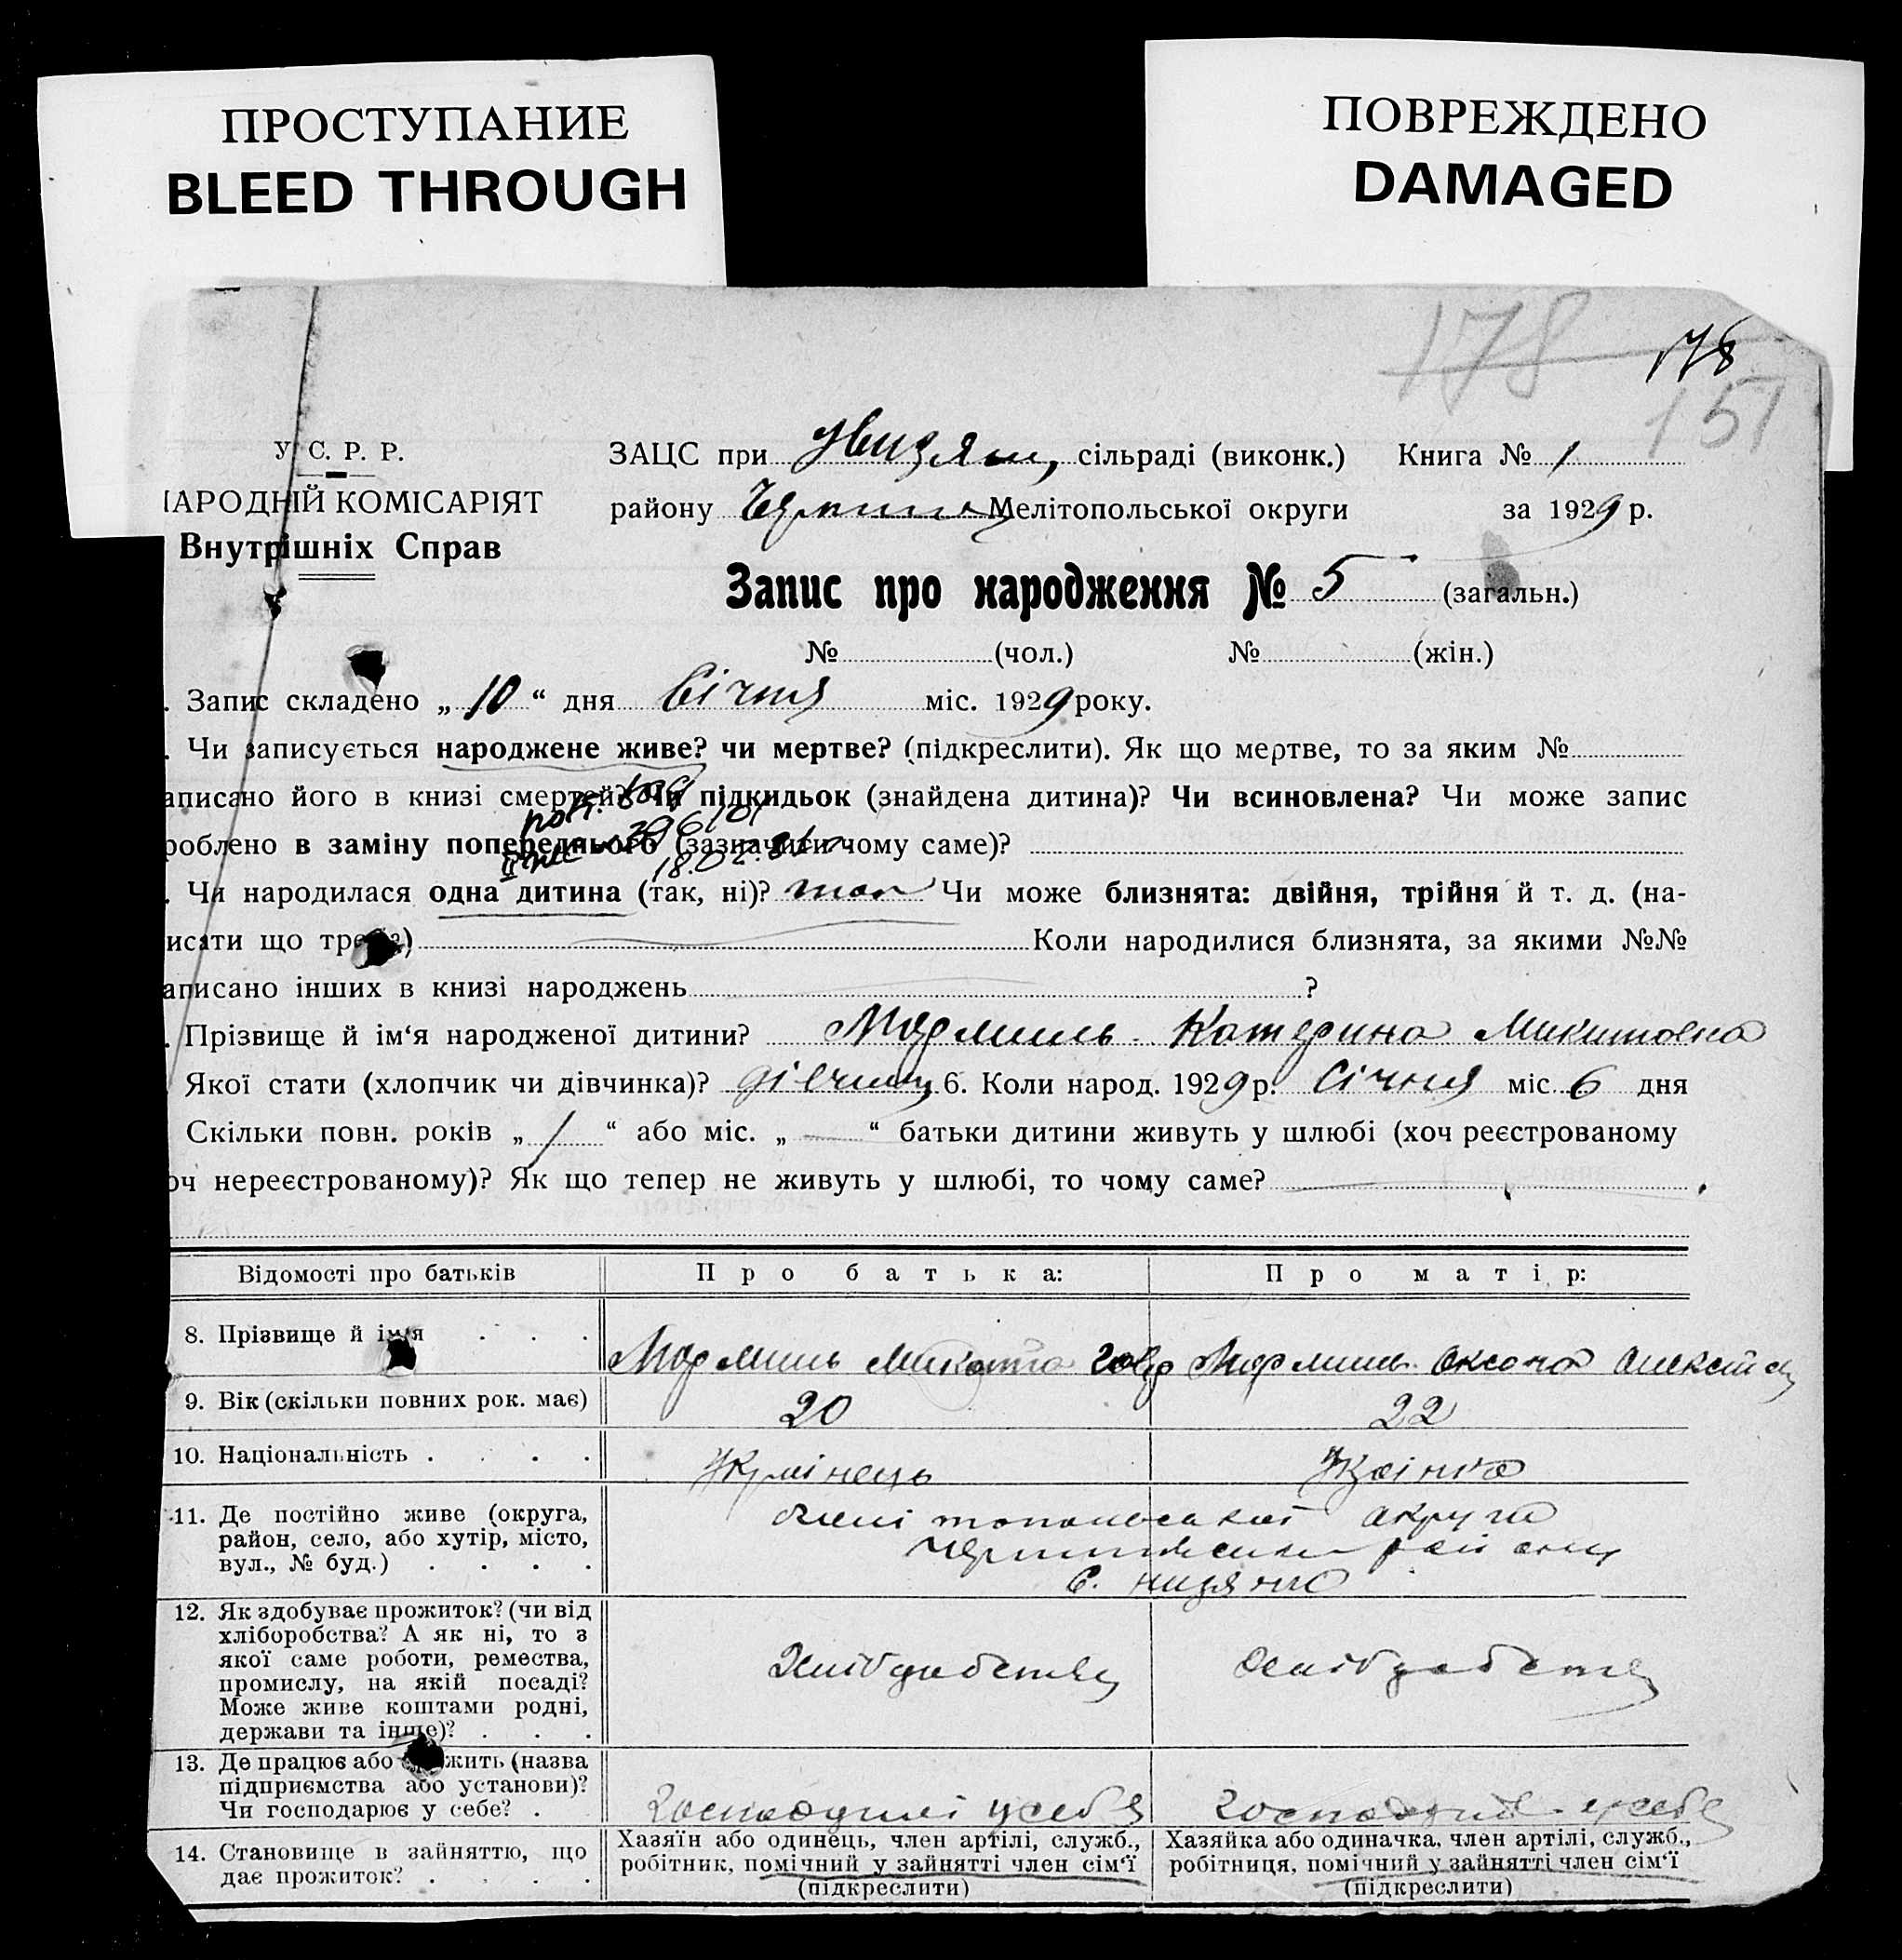 ПРОСТУПАНИЕ
BLEED THROUGH
ПОВРЕЖДЕНО
DAMAGED
178
178
151
У. С. Р. Р.
НАРОДНІЙ КОМІСАРІЯТ
Внутрішніх Справ
ЗАЦС при сільраді (виконк.) Книга № 1
району Мелітопольської округи за 1929 р.
Запис про народження № 5 (загальн.)
№ (чол.) № (жін.)
. Запис складено „ 10 “ дня Січня міс. 1929 року.
. Чи записується народжене живе? чи мертве? (підкреслити). Як що мертве, то за яким №
аписано його в книзі смертей? Чи підкидьок (знайдена дитина)? Чи всиновлена? Чи може запис
роблено в заміну попереднього (зазначити чому саме)?
. Чи народилася одна дитина (так, ні)? так Чи може близнята: двійня, трійня й т. д. (на-
исати що треба) Коли народилися близнята, за якими №№
аписано інших в книзі народжень ?
. Прізвище й ім‘я народженої дитини? Катерина Микитовна
Якої стати (хлопчик чи дівчинка)? 6. Коли народ. 1929 р. Січня міс. 6 дня
Скільки повн. років „ 1 “ або міс. „ — “ батьки дитини живуть у шлюбі (хоч реєстрованому
оч нереєстрованому)? Як що тепер не живуть у шлюбі, то чому саме?
Відомості про батьків Про батька: Про матір:
8. Прізвище й ім‘я Микита Оксана
9. Вік (скільки повних рок. має) 20 22
10. Національність .
11. Де постійно живе (округа, район, село, або хутір, місто, вул., № буд.)
округа
с.
12. Як здобуває прожиток? (чи від
хліборобства? А як ні, то з
якої саме роботи, ремества,
промислу, на якій посаді?
Може живе коштами родні,
держави та інше)?
13. Де працює або служить (назва
підприємства або установи)?
Чи господарює у себе? . у себе у себе
14. Становище в зайняттю, що
дає прожиток?
Хазяїн або одинець, член артілі, служб.,
робітник, помічний у зайнятті член сім‘ї
(підкреслити)
Хазяйка або одиначка, член артілі, служб.,
робітниця, помічний у зайнятті член сім‘ї
(підкреслити)